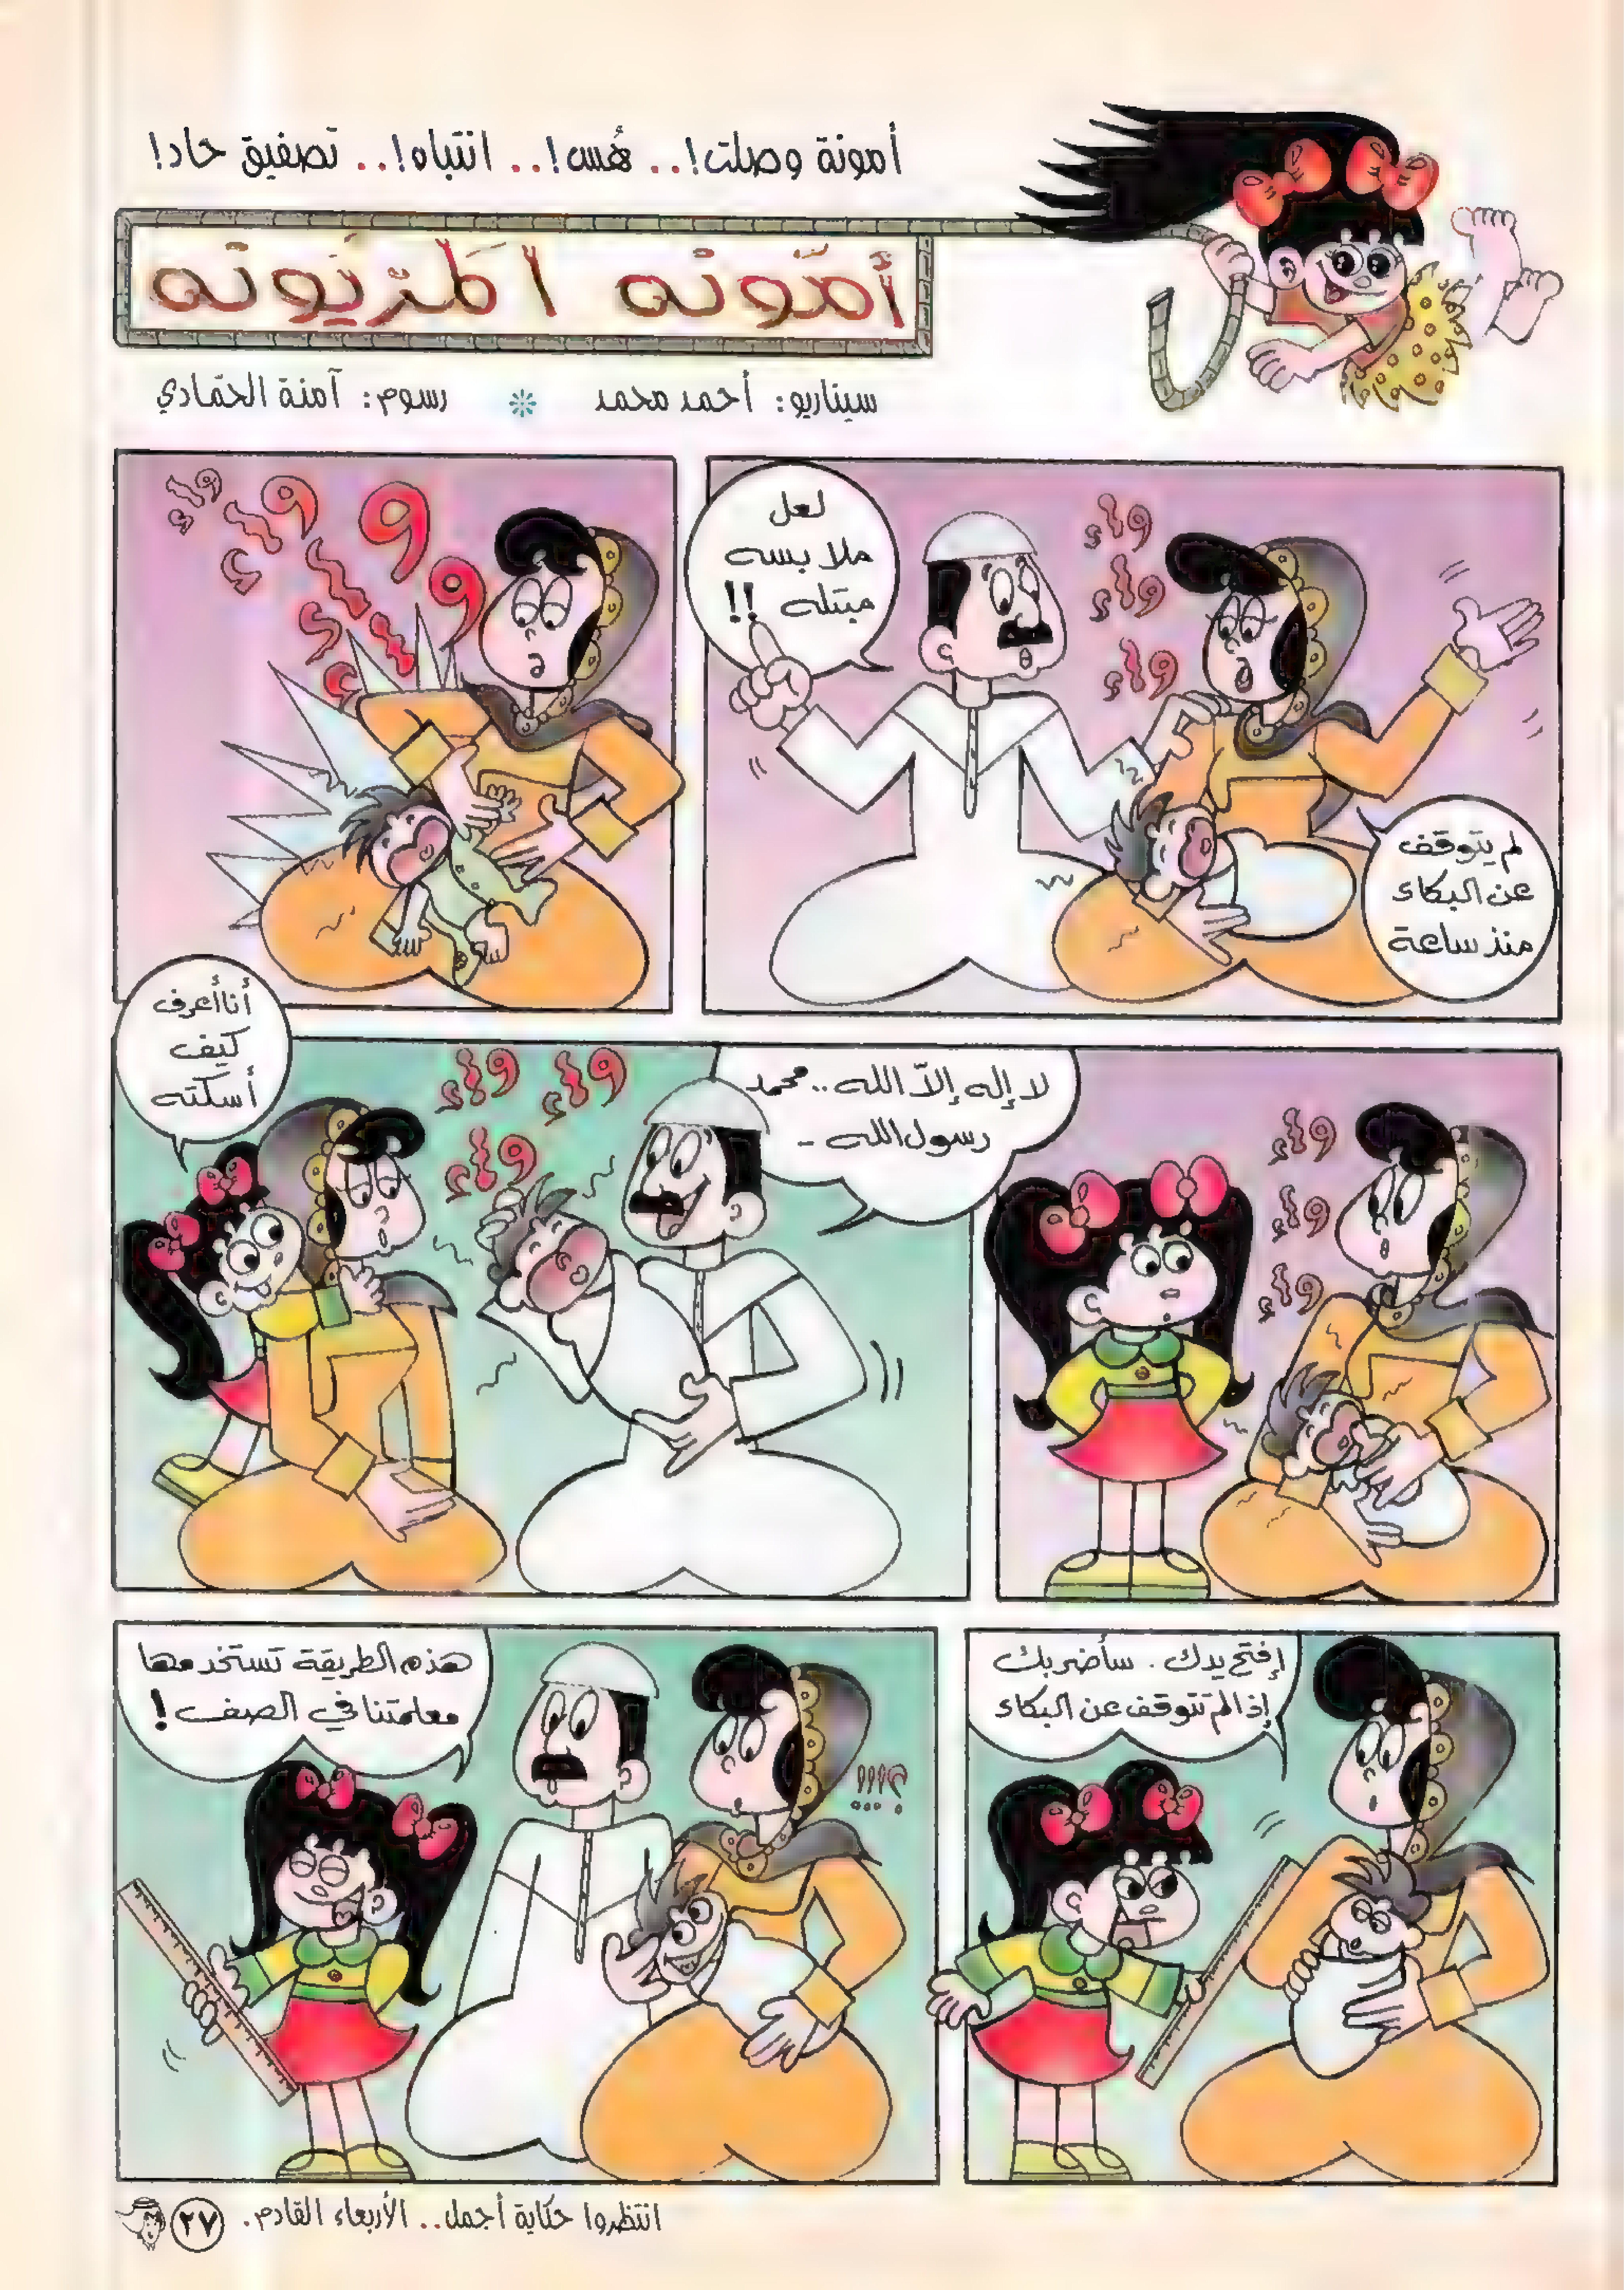 أمونة وصلت!.. هُس!.. انتباه!.. تصفيق حاد!
أمّونه المزيونه
سيناريو: أحمد محمد * رسوم: آمنة الحمّادي
لعل
ملابسه
مبتله !!
واء
واء
واء
لم يتوقف
عن البكاء
منذ ساعة
واء
واء
واء
واء
واء
واء
واء
لا إله إلاّ الله .. محمد
رسول الله -
واء
واء
واء
أنا أعرف
كيف
أسكته
إفتح يدك . سأضربك
إذا لم تتوقف عن البكاء
هذه الطريقة تستخدمها
معلمتنا في الصف !
؟!!!
انتظروا حكاية أجمل.. الأربعاء القادم.
٢٧